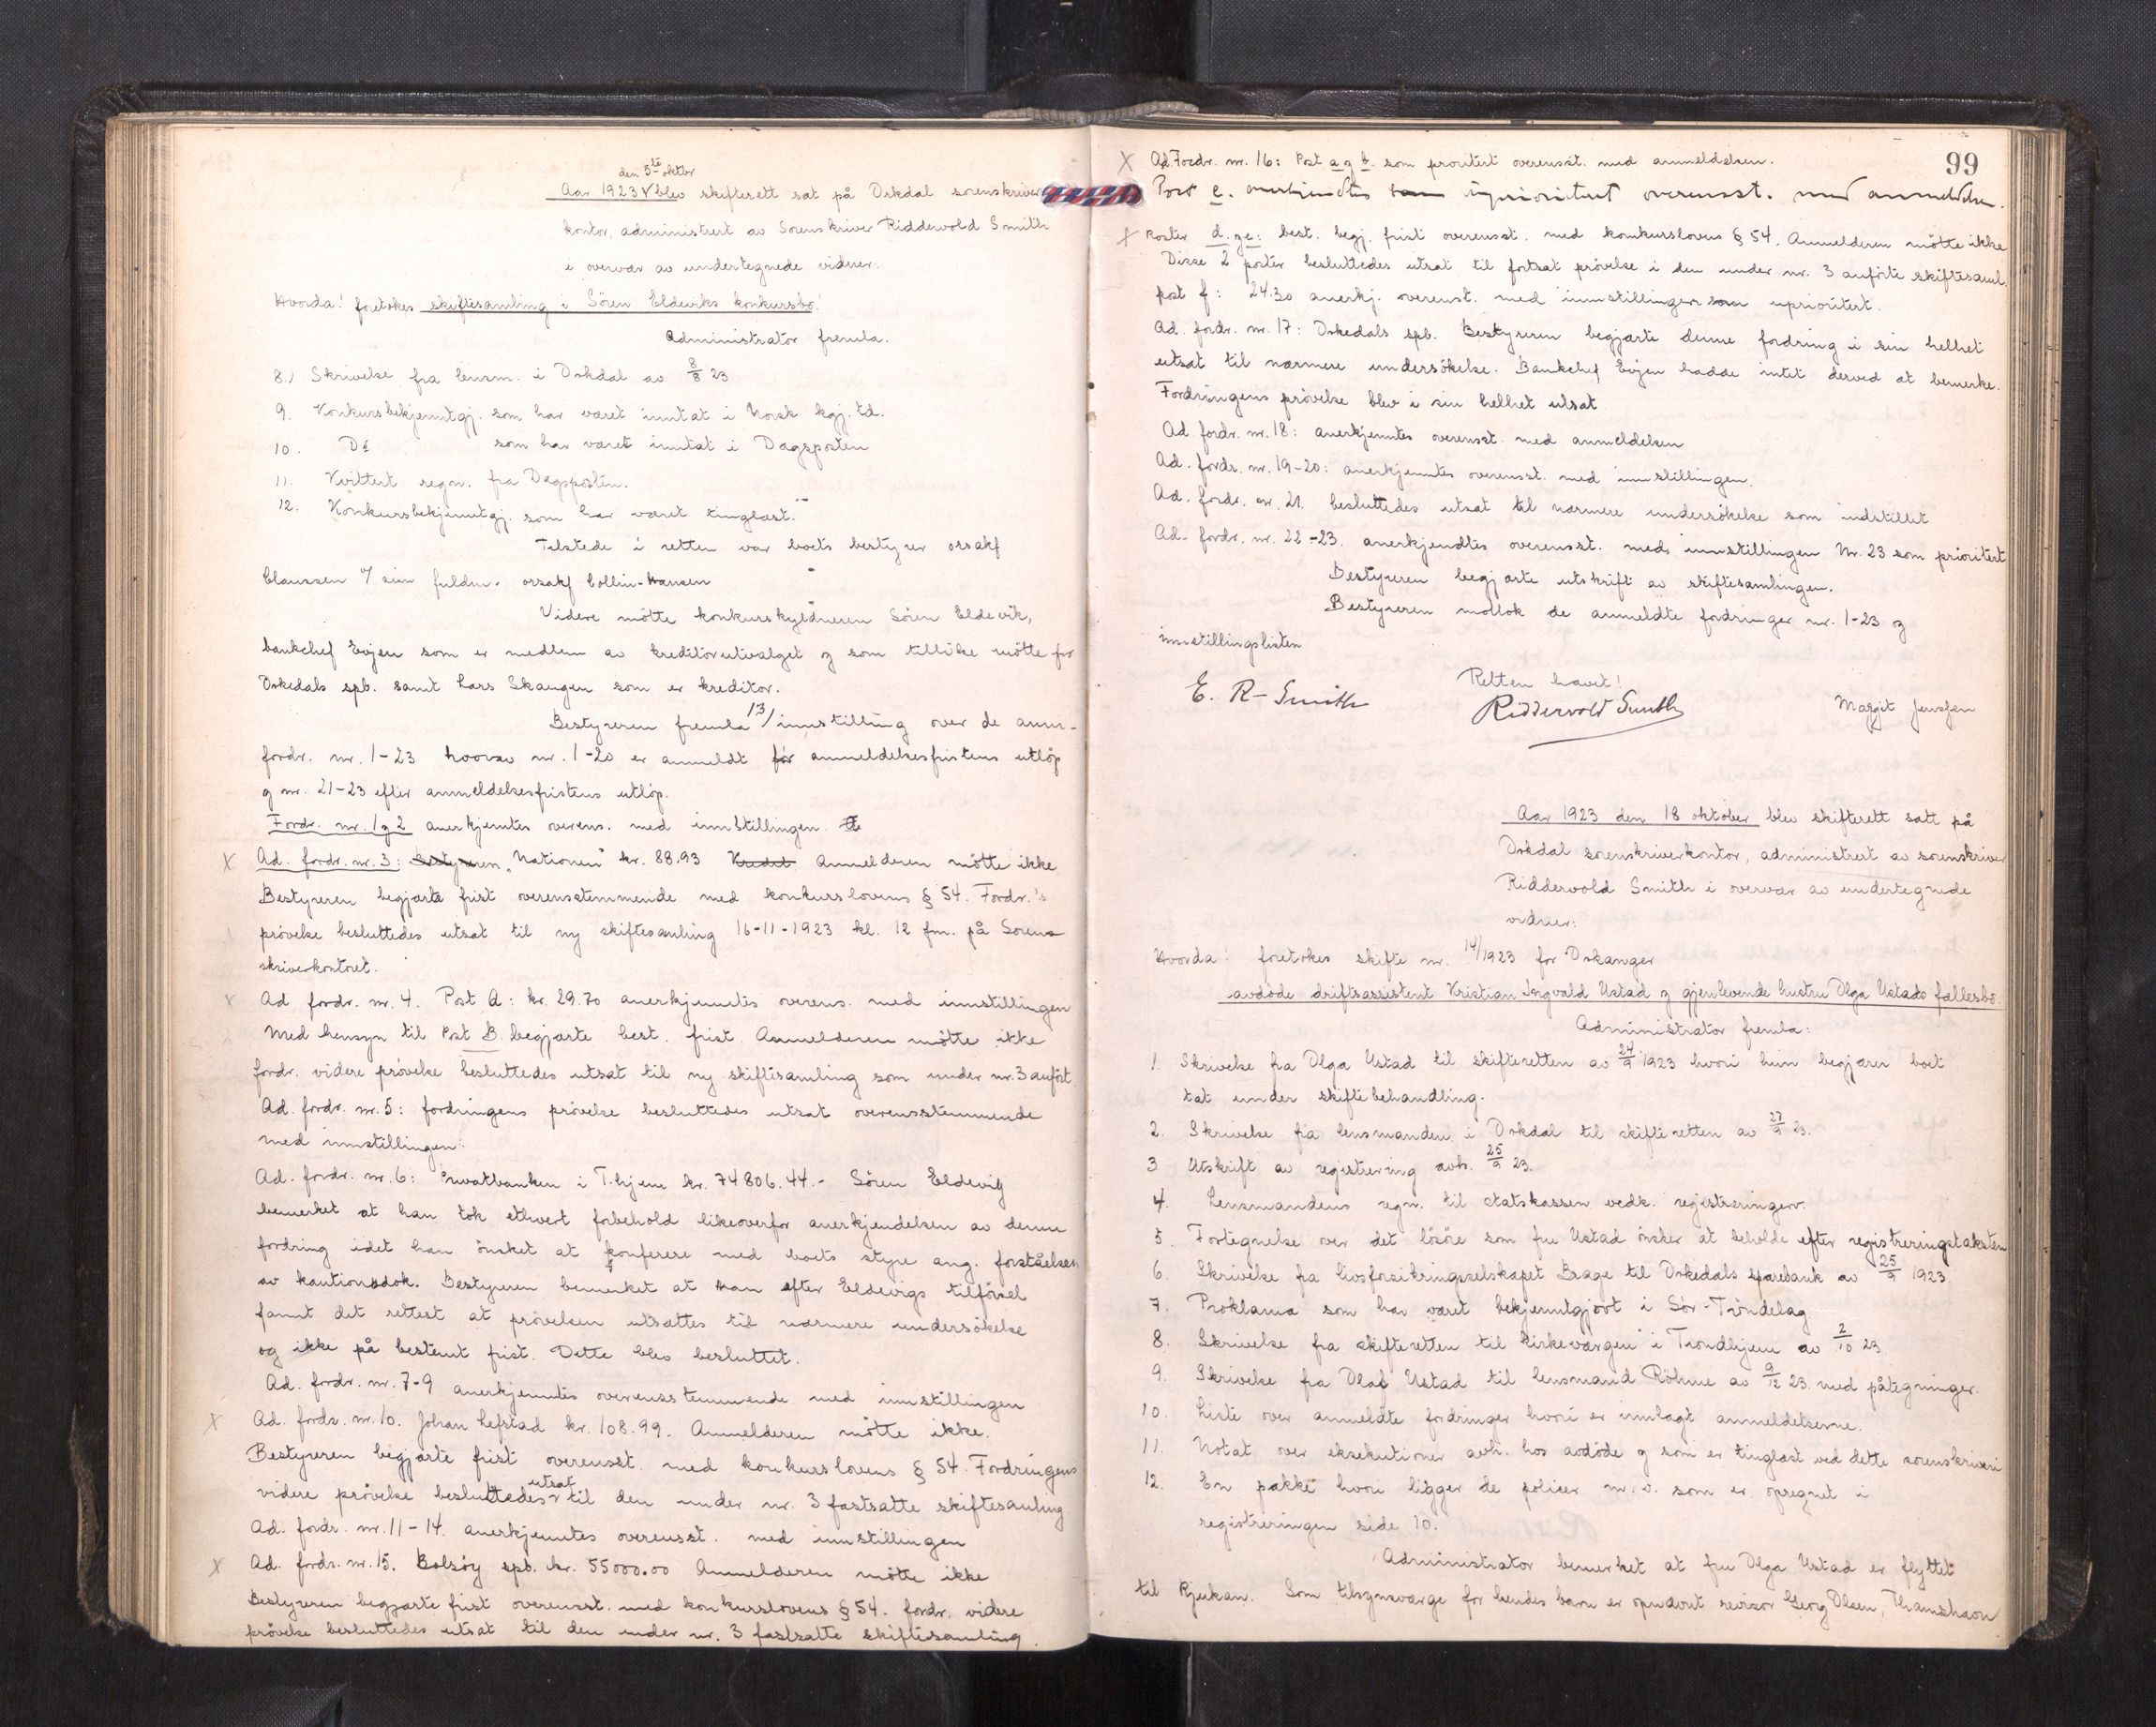 den 5te oktbr
Aar 1923 blev skifterett sat på Orkdal sorenskriver
kontor, administrert av Sorenskriver Riddervold Smith
i overvær av undertegnede vidner:
Hvorda! foretokes skiftesamling i Sören Eldeviks konkursbo.
Administrator fremla.
8.) Skrivelse fra lensm. i Orkdal av 8/8 23
9. Konkursbekjenntgj. som har været inntat i Norsk kgj.td.
10. Do som har været inntat i Dagsposten
11. Kvittert regn. fra Dagsposten.
12. Konkursbekjenntgj. som har været tinglæst.
Tilstede i retten var boets bestyrer orsakf
Claussen v/ sin fuldm. orsakf Collin-Hansen
Videre mötte konkurskyldneren Sören Eldevik,
bankchef Evjen som er medlem av kreditorutvalget og som tillike mötte for
Orkedals spb. samt Lars Skaugen som er kreditor.
Bestyreren fremla 13/ innstilling over de anm-
fordr. nr. 1-23 hvorav nr. 1-20 er anmeldt för anmeldelsesfristens utlöp
og nr. 21-23 efter anmeldelsesfristens utlöp.
Fordr. nr. 1 og 2 anerkjenntes overens. med innstillingen.
X Ad. fordr. nr. 3: Bestyreren „Nationen" kr. 88.93 Kredit Anmelderen mötte ikke
Bestyreren begjærte frist overensstemmende med konkurslovens § 54. Fordr.'s
prövelse besluttedes utsat til ny skiftesamling 16-11-1923 kl. 12 fm. på Soren-
skriverkontoret.
x Ad fordr. nr. 4. Post A: kr. 29.70 anerkjenntes overens. med innstillingen
Med hensyn til Post B. begjærte best. frist. Anmelderen mötte ikke
fordr. videre prövelse besluttedes utsat til ny skiftesamling som under nr. 3 anfört.
Ad. fordr. nr. 5: fordringens prövelse besluttedes utsat overensstemmende
med innstillingen.
Ad. fordr. nr. 6: Privatbanken i T.hjem kr. 74806.44.- Sören Eldevig
bemerket at han tok ethvert forbehold likeoverfor anerkjendelsen av denne
fordring idet han önsket at konferere med boets styre ang. forståelsen
av kautionsdok. Bestyreren bemerket at man efter Eldevigs tilförsel
fannt det rettest at prövelsen utsattes til nærmere undersökelse
og ikke på bestemt frist. Dette blev besluttet.
Ad. fordr. nr. 7-9 anerkjenntes overensstemmende med innstillingen
X Ad. fordr. nr. 10. Johan Lefstad kr. 108.99. Anmelderen mötte ikke.
Bestyreren begjærte frist overensst. med konkurslovens § 54. Fordringens
videre prövelse besluttedes utsat til den under nr. 3 fastsatte skiftesamling
Ad. fordr. nr. 11-14. anerkjenntes overensst. med innstillingen
X Ad. fordr. nr. 15. Bolsöy spb. kr. 55000.00 Anmelderen mötte ikke
Bestyreren begjærte frist overensst. med konkurslovens § 54. fordr. videre
prövelse besluttedes utsat til den under nr. 3 fastsatte skiftesamling.
99
X Ad. Fordr. nr. 16: Post a og b. som prioritert overensst. med anmeldelsen.
Post c. anerkjendtes som uprioritert overensst. med anmeldelsen.
X Poster d. og e: best. begj. frist overensst. med konkurslovens § 54. Anmelderen mötte ikke
Disse 2 poster besluttedes utsat til fortsat prövelse i den under nr. 3 anförte skiftesaml.
post f: 24.30 anerkj. overenst. med innstillingen som uprioritert.
Ad. fordr. nr. 17: Orkedals spb. Bestyreren begjærte denne fordring i sin helhet
utsat til nærmere undersökelse. Bankchef Evjen hadde intet derved at bemerke.
Fordringens prövelse blev i sin helhet utsat
Ad. fordr. nr. 18: anerkjenntes overensst. med anmeldelsen
Ad. fordr. nr. 19-20: anerkjenntes overensst. med innstillingen.
Ad. fordr. nr. 21. besluttedes utsat til nærmere undersökelse som indstillet
Ad. fordr. nr. 22-23. anerkjendtes overensst. med innstillingen Nr. 23 som prioritert
Bestyreren begjærte utskrift av skiftesamlingen.
Bestyreren mottok de anmeldte fordringer nr. 1-23 og
innstillingslisten
Retten hævet!
E. R-Smith Riddervold Smith Margit Jenssen
Aar 1923 den 18 oktober blev skifterett satt på
Orkdal sorenskriverkontor, administrert av sorenskriver
Riddervold Smith i overvær av undertegnede
vidner:
Hvorda! foretokes skifte nr. 14/1923 for Orkanger
avdöde driftsassistent Kristian Ingvald Ustad og gjenlevende hustru Olga Ustads fællesbo.
Administrator fremla:
1. Skrivelse fra Olga Ustad til skifteretten av 24/9 1923 hvori hun begjærer boet
tat under skiftebehandling.
2. Skrivelse fra lensmanden i Orkdal til skifteretten av 27/9 23.
3 Utskrift av registrering avh. 25/9 23.
4. Lensmandens regn. til statskassen vedk. registreringen.
5. Fortegnelse over det lösöre som fru Ustad önsker at beholde efter registreringstaksten
6. Skrivelse fra livsforsikringsselskapet Brage til Orkedals sparebank av 25/9 1923.
7. Proklama som har været bekjenntgjort i Sör-Tröndelag
8. Skrivelse fra skifteretten til kirkevergen i Trondhjem av 2/10 23.
9. Skrivelse fra Olaf Ustad til lensmand Röhme av 9/12 23. med påtegninger.
10. Liste over anmeldte fordringer hvori er innlagt anmeldelserne.
11. Notat over eksekutioner avh. hos avdöde og som er tinglæst ved dette sorenskriveri
12. En pakke hvori ligger de policer m.v. som er opregnet i
registreringen side 10.
Administrator bemerket at fru Olga Ustad er flyttet
til Rjukan. Som tilsynsværge for hendes barn er opnævnt revisor Georg Olsen, Thamshavn